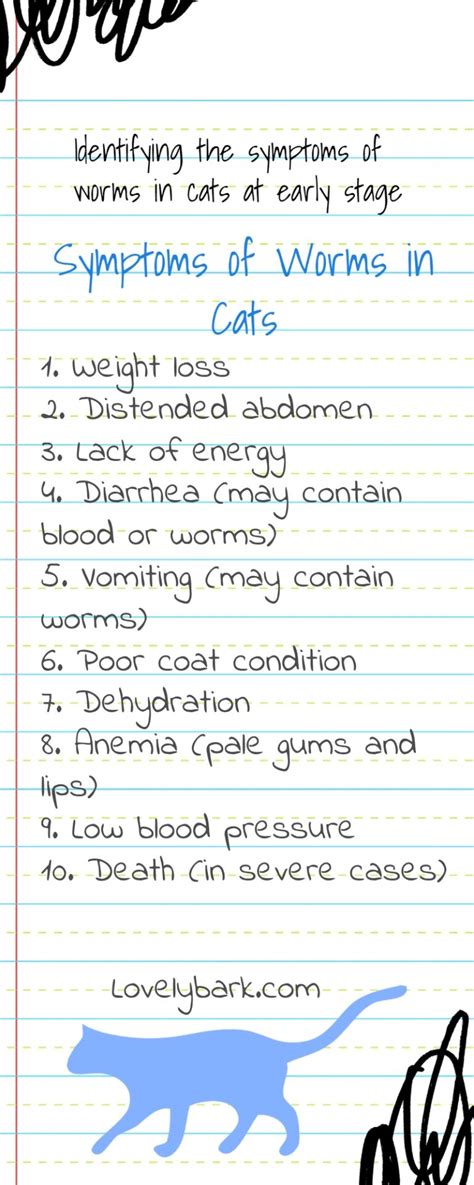 Identifying the symptoms of
worms in cats at early stage
Symptoms of Worms in
Cats
1. Weight loss
2. Distended abdomen
3. Lack of energy
4. Diarrhea (may contain
blood or worms)
5. Vomiting (may contain
worms)
6. Poor coat condition
7. Dehydration
8. Anemia (pale gums and
lips)
9. Low blood pressure
10. Death (in severe cases)
Lovelybark.com